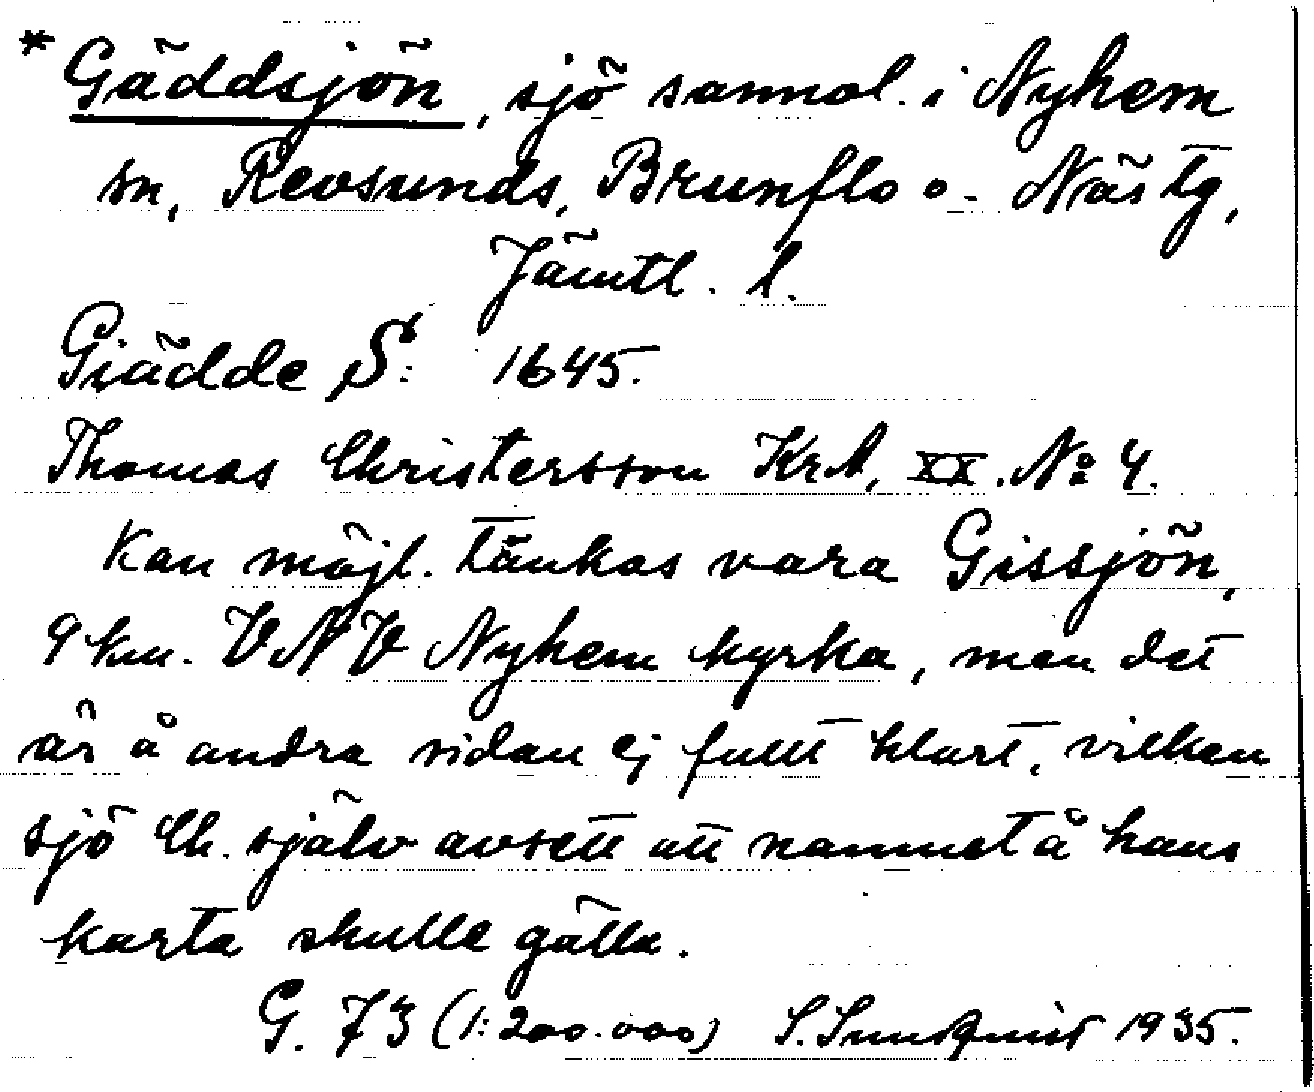 * Gäddsjön, sjö sannol. i Nyhem
sn, Revsunds, Brunflo o. Näs tg,
Jämtl. l.
Giädde S: 1645.
Thomas Christersson KrA, XX. No 4.
Kan möjl. tänkas vara Gissjön,
9 km. VNV Nyhem kyrka, men det
är å andra sidan ej fullt klart, vilken
sjö Ch. själv avsett att namnet å hans
karta skulle gälla.
G. 73 (1:200.000) S. Sundqvist 1935.